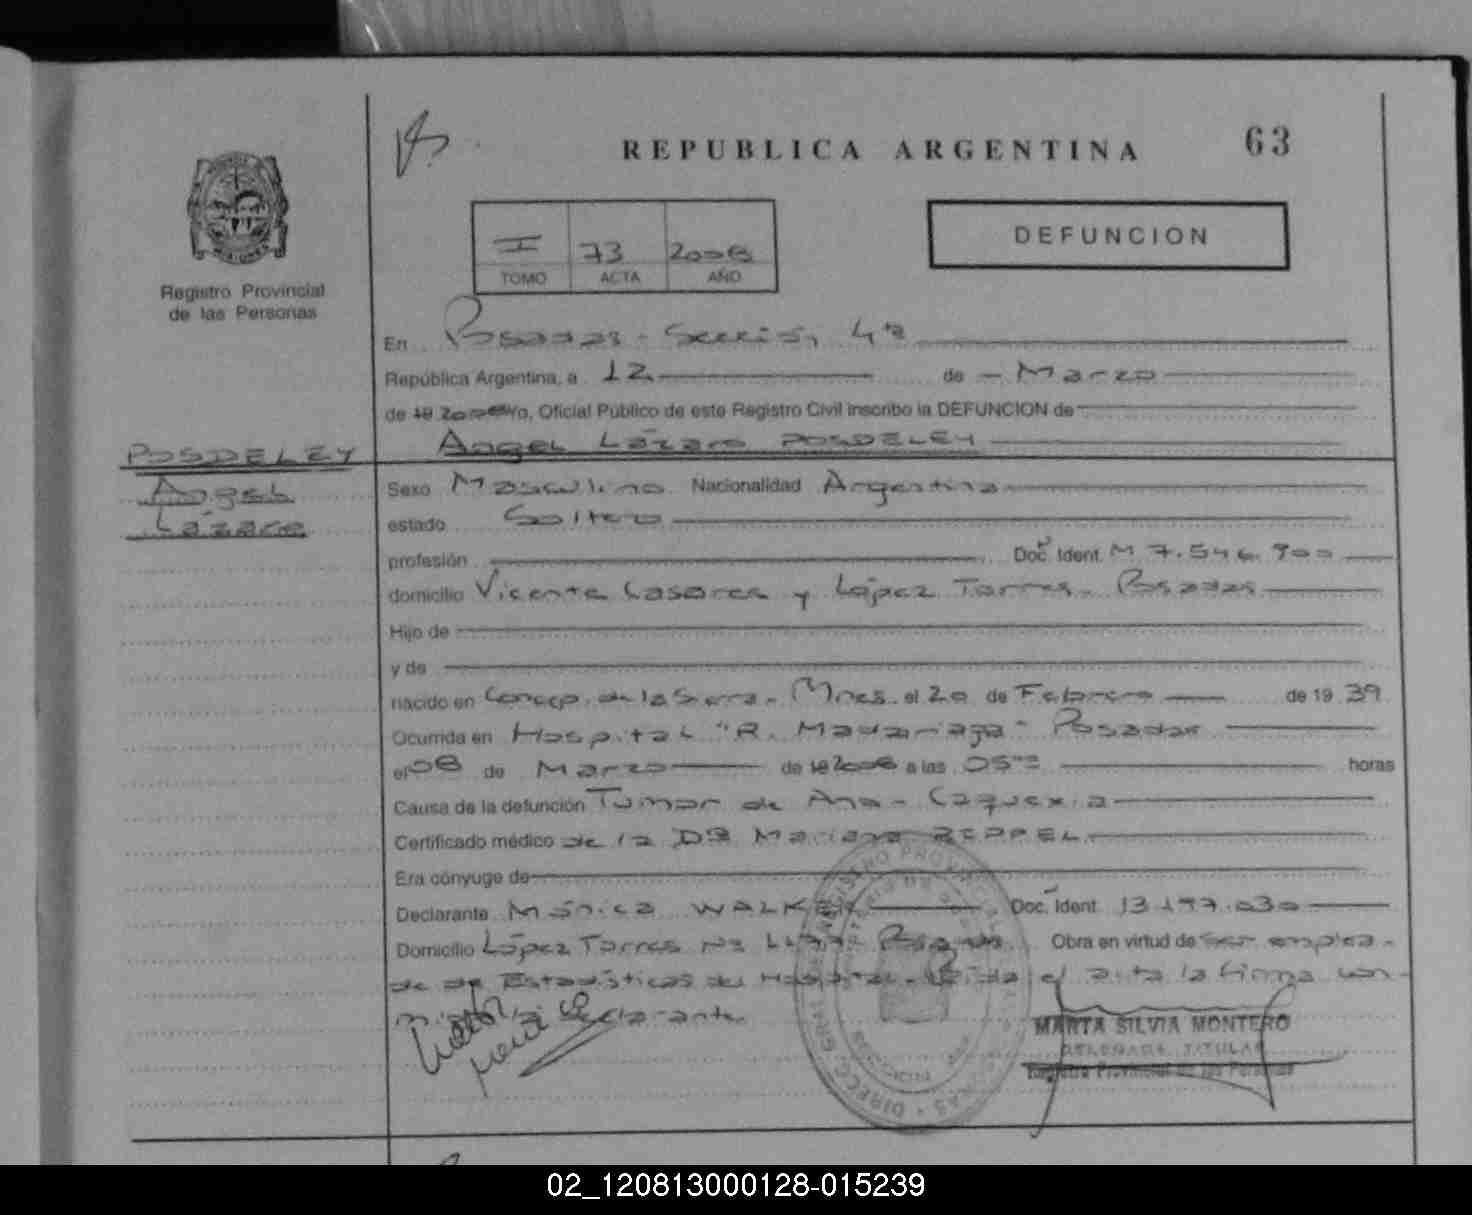 REPUBLICA ARGENTINA
63
DEFUNCION
I 73 2008
TOMO ACTA AÑO
Registro Provincial
de las Personas
En Posadas - Sección 4ta
República Argentina, a 12 de Marzo
de 19 2008 Yo, Oficial Público de este Registro Civil inscribo la DEFUNCION de
Angel Lázaro POSDELEY
POSDELEY
Angel
Lázaro
Sexo Masculino Nacionalidad Argentina
estado Soltero
profesión Doc. Ident. M 7.546.900
domicilio Vicente Casares y López Torres - Posadas
Hijo de
y de
nacido en Concep. de la Sierra - Mnes. el 20 de Febrero de 19 39
Ocurrida en Hospital "R. Madariaga" Posadas
el 08 de Marzo de 19 2008 a las 05 horas
Causa de la defunción Tumor de Ano - Caquexia
Certificado médico de la DRA Mariana ZEPPEL
Era cónyuge de
Declarante Mónica WALKER Doc. Ident. 13.197.030
Domicilio López Torres No Posadas Obra en virtud de ser emplea-
da de Estadísticas del Hospital - Leída el acta la firma con-
migo la declarante.
MARTA SILVIA MONTERO
DELEGADA TITULAR
Registro Provincial de las Personas
02_120813000128-015239